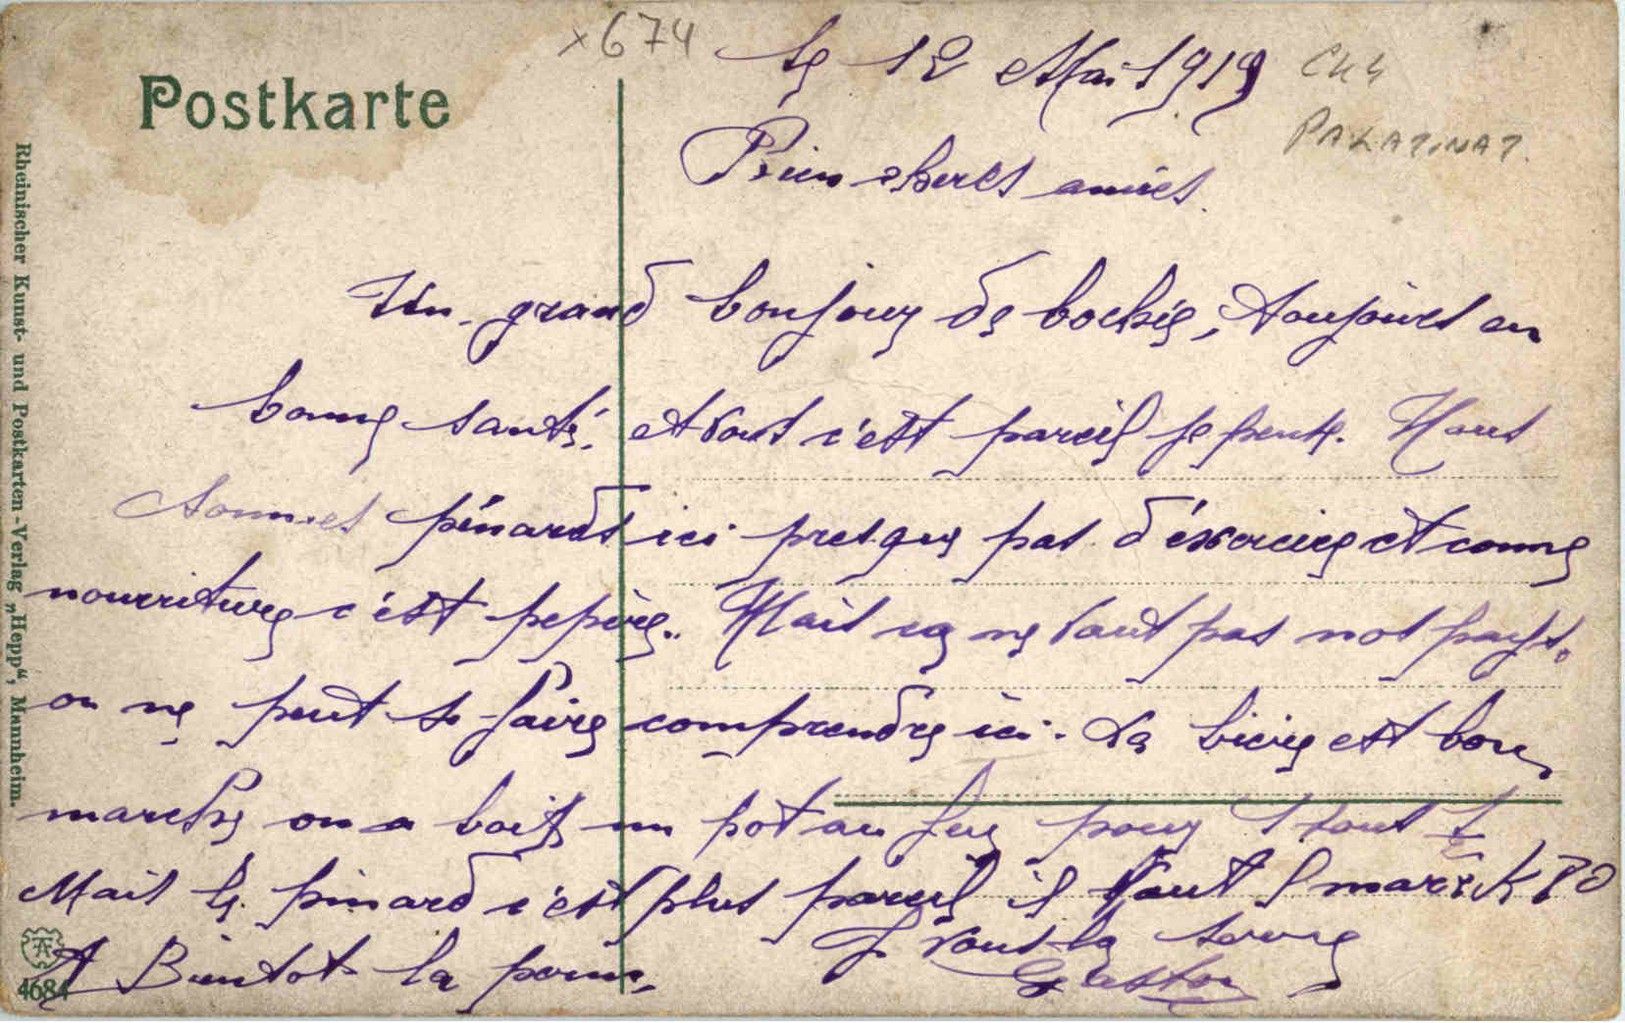 x 674
Postkarte
Le 12 Mai 1919
PALATINAT.
Bien cheres amies.
Un grand bonjour de bochie, toujours en
bonne santé, et vous c'est pareil je pense. Nous
sommes pénards ici presque pas d'éxercice et comme
nourriture c'est pepère. Mais ca ne vaut pas nos pays.
on ne peut se faire comprendre ici. La bière est bon
marche on a boit un pot au feu pour 1 sout
Mais le pinard c'est plus pareil il vaut 8 marck 70
Je vous la serre
A Bientot la perme, Gaston
Rheinischer Kunst- und Postkarten-Verlag „Hepp“, Mannheim.
4684